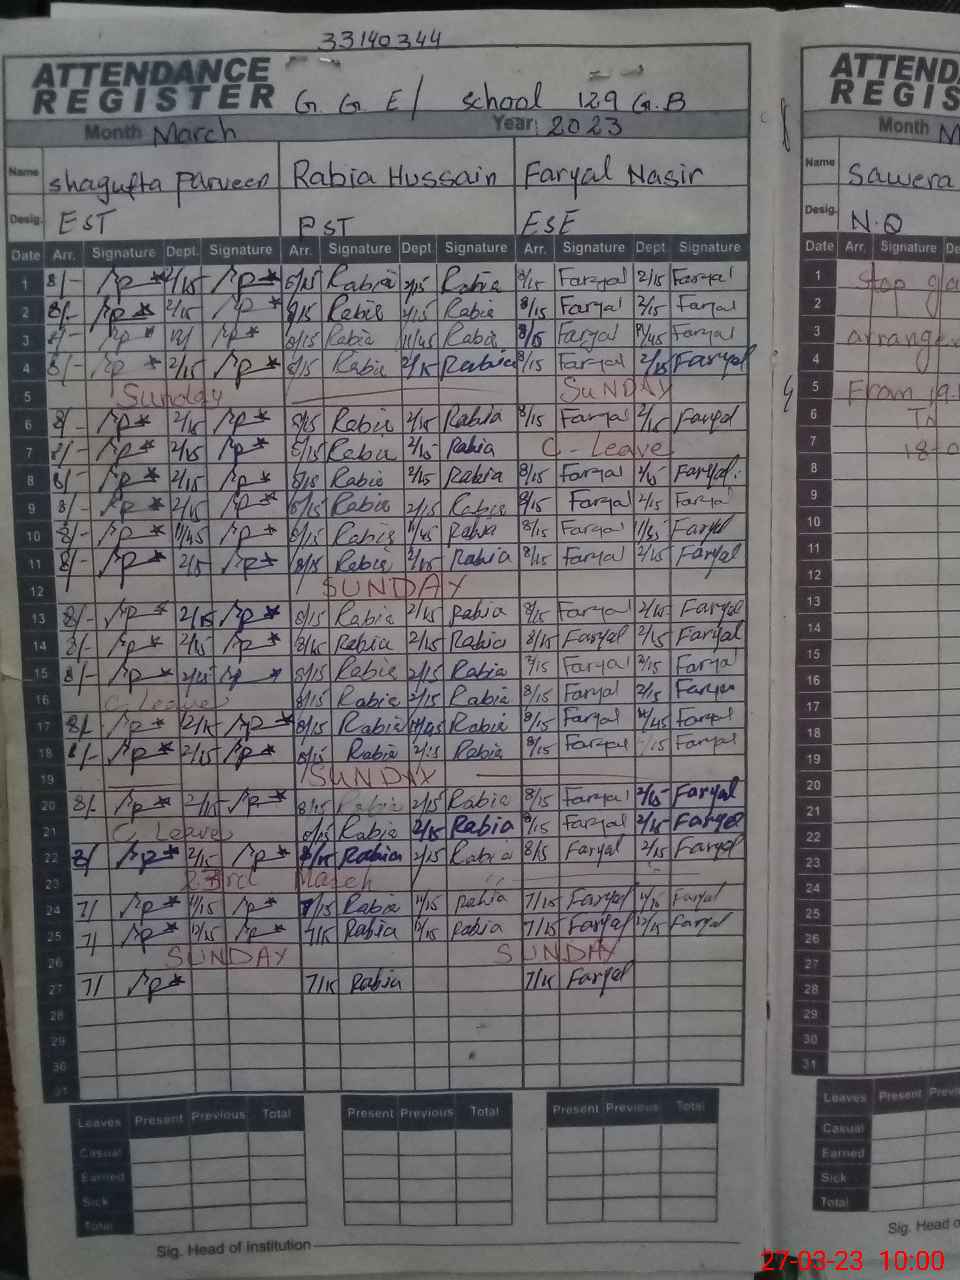 33140344
ATTENDANCE REGISTER G. G. E/ school 129 G.B
Month March Year: 2023
Name Shagufta Parveen Rabia Hussain Faryal Nasir
Desig. EST PST ESE
Date Arr. Signature Dept. Signature Arr. Signature Dept Signature Arr. Signature Dept. Signature
1 8/- 2/15 Rabia Rabia Faryal 2/15 Faryal
2 8/- 2/15 Rabia 2/15 Rabia 8/15 Faryal 2/15 Faryal
3 Rabia 11/45 Rabia 8/15 Faryal Faryal
4 8/- 2/15 Rabia 2/15 Rabia 8/15 Faryal 2/15 Faryal
5 Sunday SUNDAY
6 8/- 2/15 8/15 Rabia 2/15 Rabia 8/15 Faryal 2/15 Faryal
7 8/- 2/15 8/15 Rabia 2/15 Rabia C - Leave
8 8/- 2/15 8/15 Rabia 2/15 Rabia 8/15 Faryal 2/15 Faryal
9 8/- 2/15 8/15 Rabia 2/15 Rabia 8/15 Faryal 2/15 Faryal
10 8/- 11/45 8/15 Rabia 11/45 Rabia 8/15 Faryal Faryal
11 8/- 2/15 8/15 Rabia 2/15 Rabia 8/15 Faryal 2/15 Faryal
12 SUNDAY
13 8/- 2/15 8/15 Rabia 2/15 Rabia 8/15 Faryal 2/15 Faryal
14 8/- 2/15 8/15 Rabia 2/15 Rabia 8/15 Faryal 2/15 Faryal
15 8/- 8/15 Rabia 2/15 Rabia Faryal 2/15 Faryal
16 C. Leave 8/15 Rabia 2/15 Rabia 8/15 Faryal 2/15 Faryal
17 8/- 8/15 Rabia Rabia 8/15 Faryal Faryal
18 8/- 2/15 Rabia 2/15 Rabia 8/15 Faryal Faryal
19 SUNDAY
20 8/- 2/15 8/15 Rabia 2/15 Rabia 8/15 Faryal 2/15 Faryal
21 C. Leave 8/15 Rabia 2/15 Rabia 8/15 Faryal 2/15 Faryal
22 8/ 2/15 8/15 Rabia 2/15 Rabia 8/15 Faryal 2/15 Faryal
23 23rd March
24 7/ 11/15 7/15 Rabia 11/15 Rabia 7/15 Faryal Faryal
25 7/ 12/15 7/15 Rabia 12/15 Rabia 7/15 Faryal 12/15 Faryal
26 SUNDAY SUNDAY
27 7/ 7/15 Rabia 7/15 Faryal
28
29
30
31
Leaves Present Previous Total Present Previous Total Present Previous Total
Casual
Earned
Sick
Total
Sig. Head of Institution
ATTENDA
REGIS
Month M
Name Sawera
Desig. N.Q
Date Arr. Signature De
1 Stop
2
3 arrange
4
5 From
6
7
8
9
10
11
12
13
14
15
16
17
18
19
20
21
22
23
24
25
26
27
28
29
30
31
Leaves Present Previ
Casual
Earned
Sick
Total
Sig. Head o
27-03-23 10:00